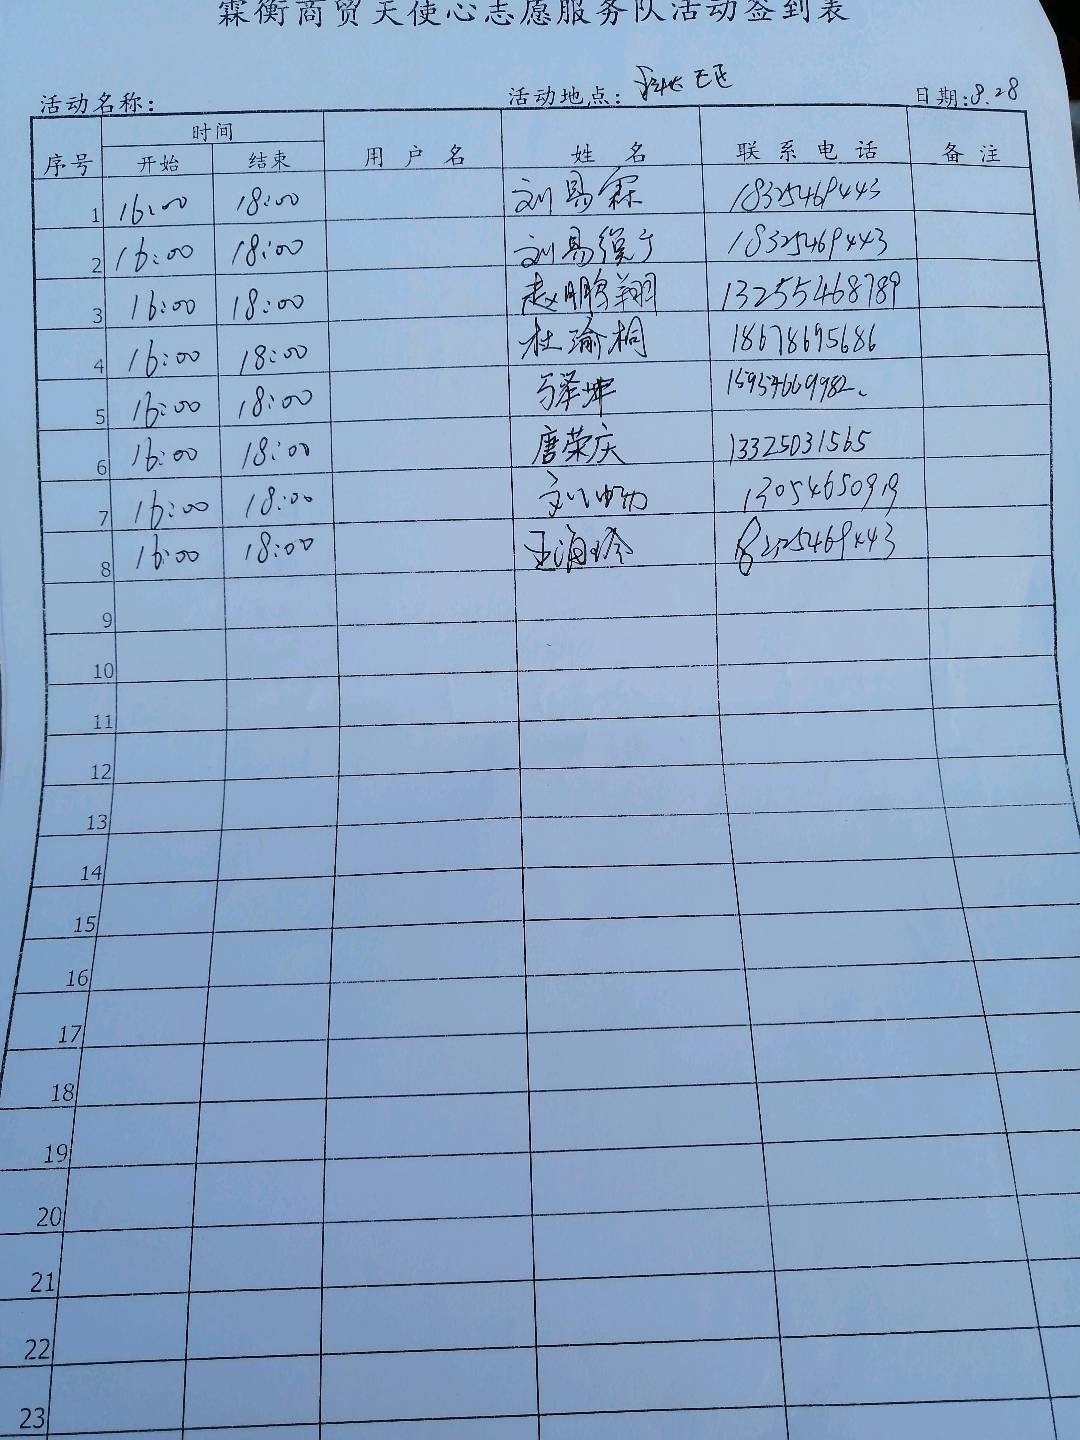 霖衡商贸天使心志愿服务队活动签到表
活动名称: 活动地点: 日期:8.28
序号 时间 用户名 姓名 联系电话 备注
开始 结束
1 16:00 18:00 刘易霖 18325469443
2 16:00 18:00 刘易 18325469443
3 16:00 18:00 赵鹏翔 13255468789
4 16:00 18:00 杜瑜桐 18678695686
5 16:00 18:00 15954669982
6 16:00 18:00 唐荣庆 13325031565
7 16:00 18:00 刘 13054650919
8 16:00 18:00 王海玲
9
10
11
12
13
14
15
16
17
18
19
20
21
22
23